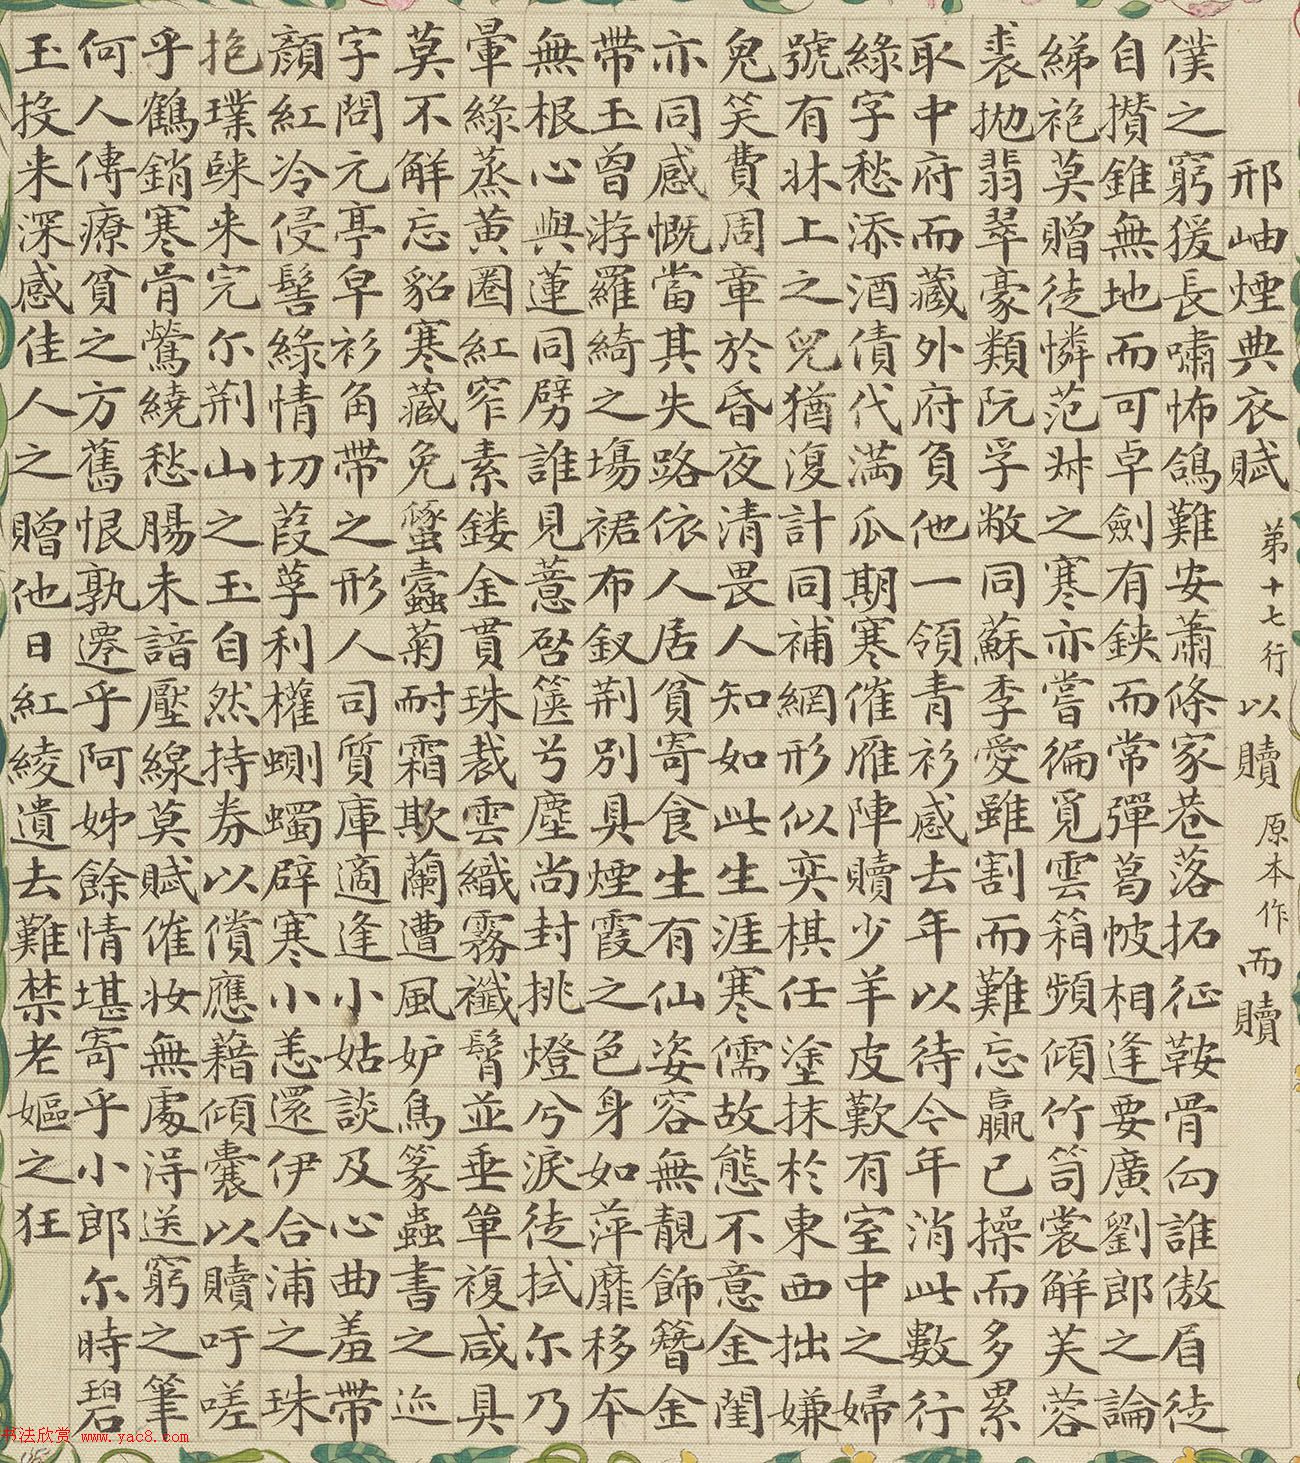 邢岫煙典衣賦 第十七行以贖原本作而贖
僕之窮猨長嘯怖鴿難安蕭條家巷落拓征鞍骨向誰傲眉徒
自攢錐無地而可卓劍有鋏而常彈葛帔相逢要廣劉郎之論
綈袍莫贈徒憐范叔之寒亦嘗徧覓雲箱頻傾竹笥裳解芙蓉
裘拋翡翠豪類阮孚敝同蘇季愛雖割而難忘贏已操而多累
取中府而藏外府負他一領青衫感去年以待今年消此數行
綠字愁添酒債代滿瓜期寒催雁陣贖少羊皮歎有室中之婦
號有牀上之兒猶復計同補網形似奕棋任塗抹於東西拙嫌
鬼笑費周章於昏夜清畏人知如此生涯寒儒故態不意金閨
亦同感慨當其失路依人居貧寄食生有仙姿容無靚飾簪金
帶玉曾游羅綺之場裙布釵荊別具煙霞之色身如萍靡移本
無根心與蓮同劈誰見薏啓篋兮塵尚封挑燈兮淚徒拭尔乃
暈綠蒸黃圈紅窄素鏤金貫珠裁雲織霧襳髾並垂單複咸具
莫不解忘貂寒藏免蟁蠹菊耐霜欺蘭遭風妒鳥篆蟲書之迹
字問元亭皁衫角帶之形人司質庫適逢小姑談及心曲羞帶
顏紅冷侵髻綠情切葭莩利權蝍蠋辟寒小恙還伊合浦之珠
抱璞睞来完尔荊山之玉自然持券以償應藉傾囊以贖吁嗟
乎鶴銷寒骨鶯繞愁腸未諳壓線莫賦催妝無處淂送窮之筆
何人傳療貧之方舊恨孰遷乎阿姊餘情堪寄乎小郎尔時碧
玉投来深感佳人之贈他日紅綾遺去難禁老嫗之狂
书法欣赏 www.yac8.com